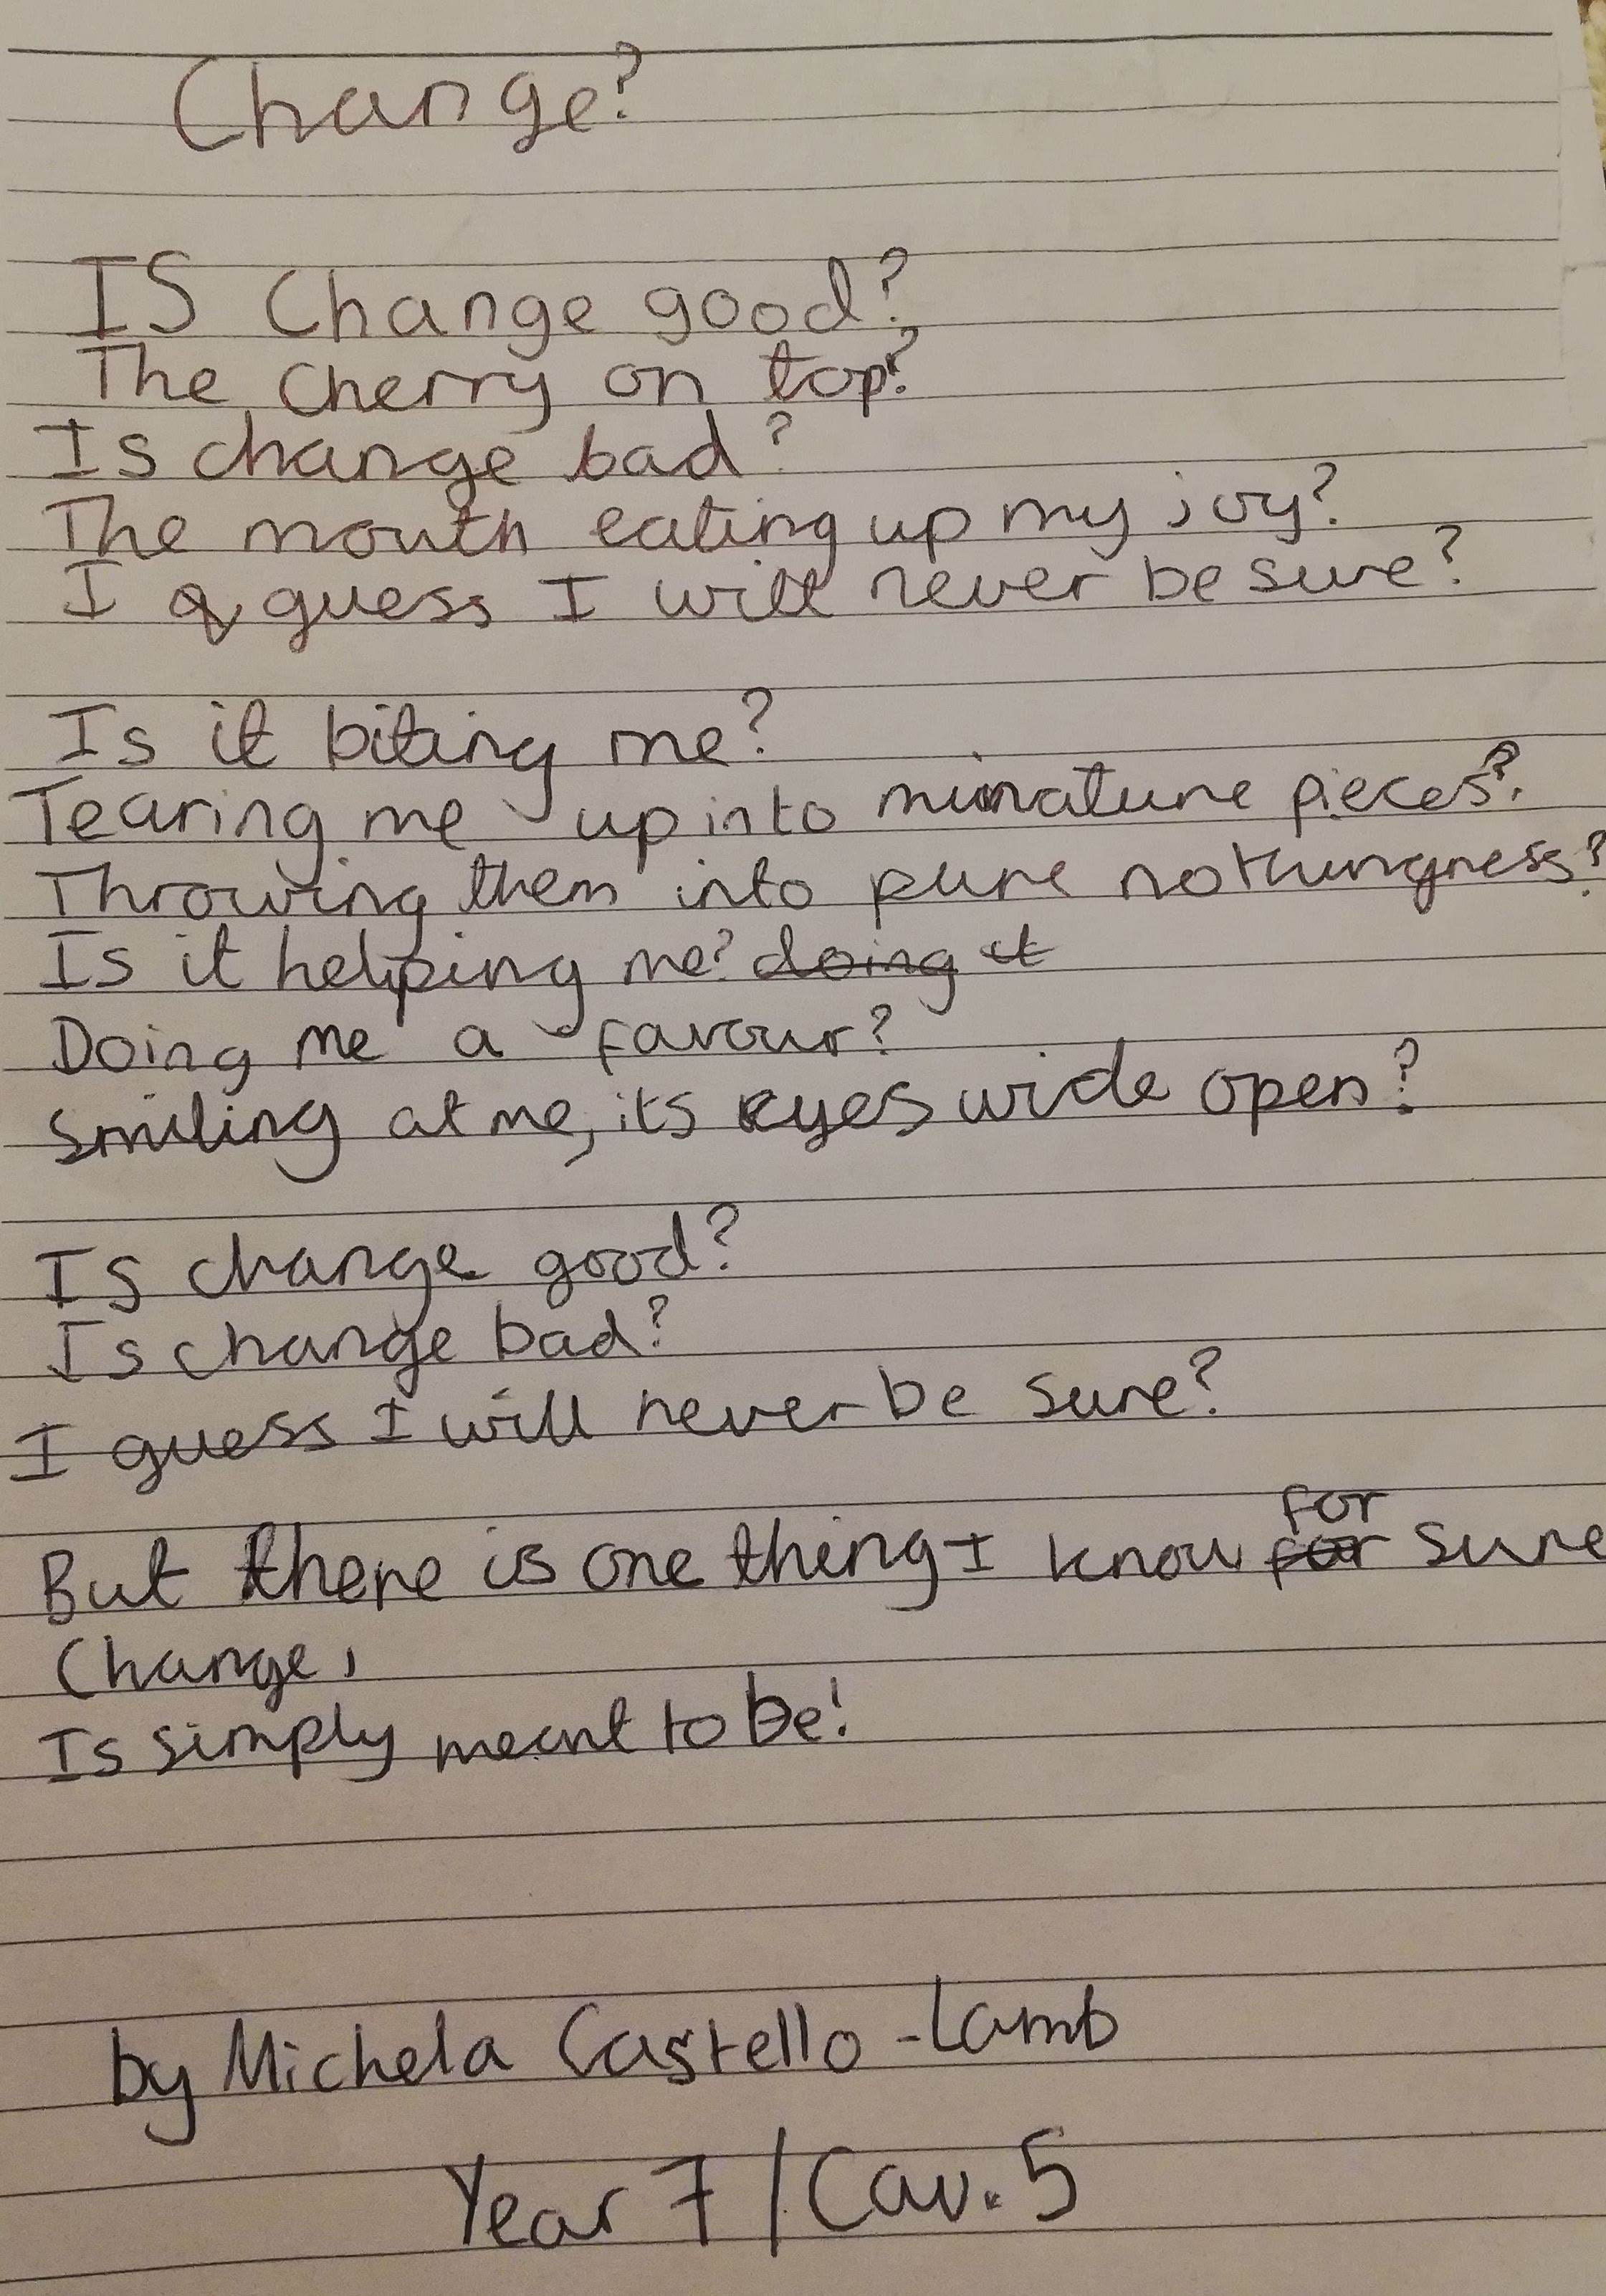 Change?
IS Change good?
The Cherry on top?
Is change bad?
The mouth eating up my joy?
I guess I will never be sure?
Is it biting me?
Tearing me up into minature pieces?
Throwing them into pure nothingness?
Is it helping me? doing it
Doing me a favour?
Smiling at me, its eyes wide open?
Is change good?
Is change bad?
I guess I will never be sure?
for
But there is one thing I know for sure
Change,
Is simply meant to be!
by Michela Castello-Lamb
Year 7 / Cav. 5